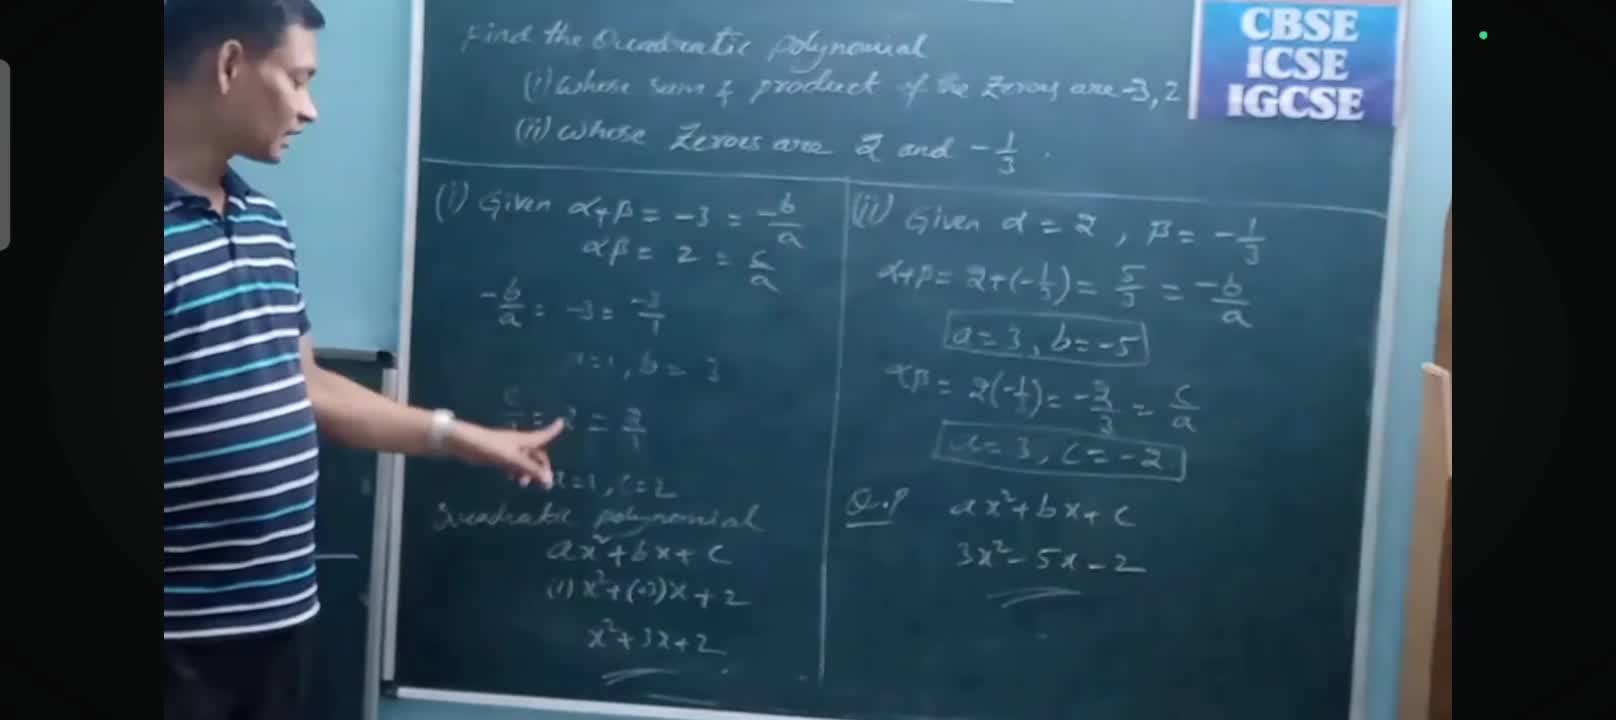 Find the Quadratic polynomial
(i) whose sum & product of the zeroes are -3, 2
(ii) whose zeroes are 2 and -1/3.
CBSE
ICSE
IGCSE
(i) Given α+β = -3 = -b/a
αβ = 2 = c/a
-b/a = -3 = -3/1
a=1, b = 3
= 2 = 2/1
a=1, c=2
Quadratic polynomial
ax²+bx+c
(1)x²+(+3)x+2
x²+3x+2
(ii) Given α = 2, β = -1/3
α+β = 2+(-1/3) = 5/3 = -b/a
a=3, b=-5
αβ = 2(-1/3) = -2/3 = c/a
a=3, c=-2
Q.P ax²+bx+c
3x²-5x-2